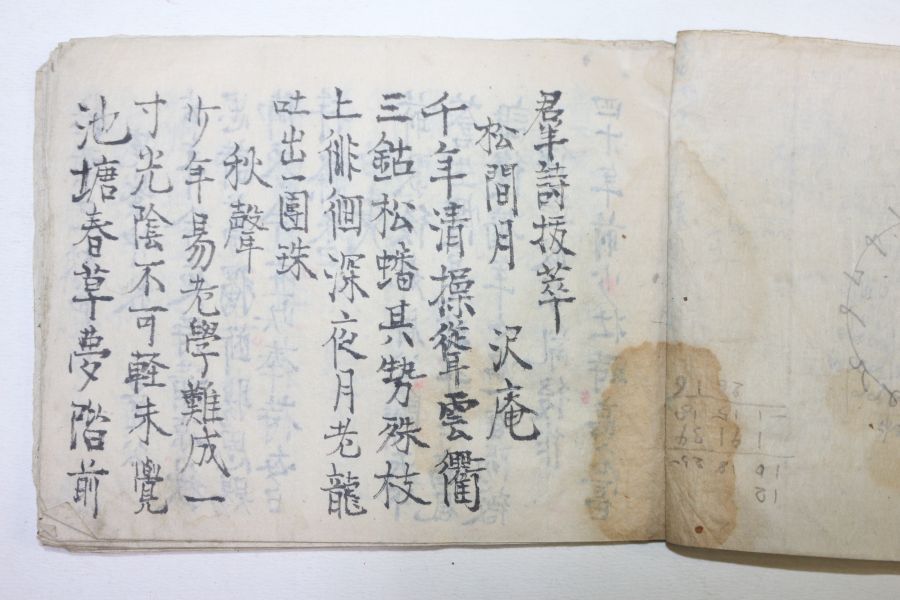 羣詩抜萃
松間月 沢庵
千年清操聳雲衢
三鈷松蟠其勢殊枝
上徘徊深夜月老龍
吐出一團珠
秋聲
少年易老學難成一
寸光陰不可軽未覺
池塘春草夢階前